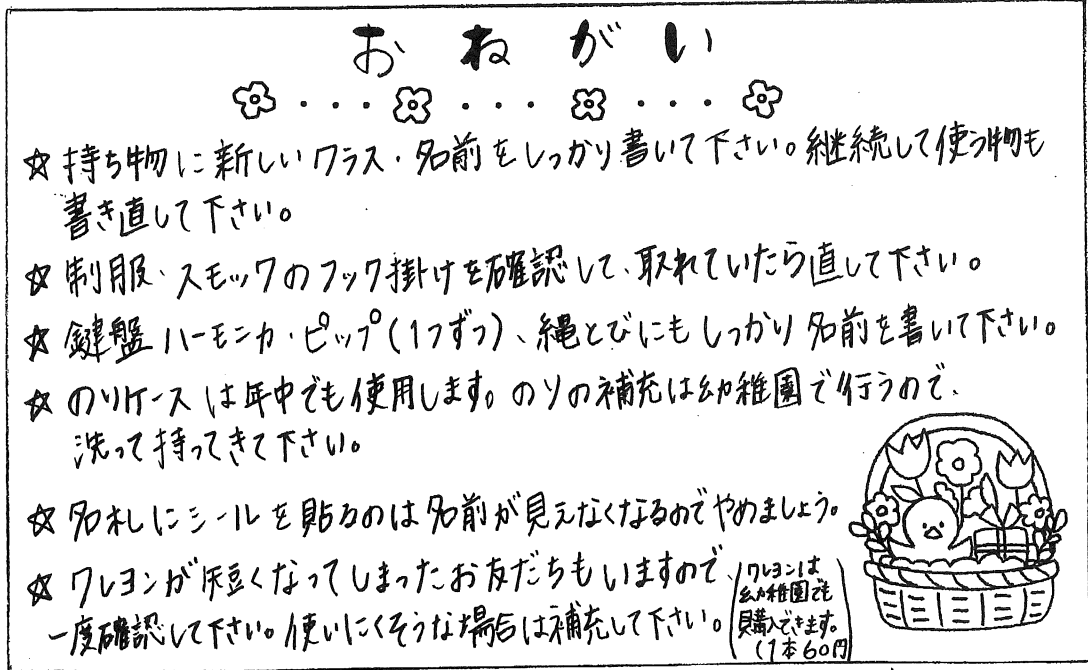 おねがい
☆持ち物に新しいクラス・名前をしっかり書いて下さい。継続して使う物も
書き直して下さい。
☆制服・スモックのフック掛けを確認して、取れていたら直して下さい。
☆鍵盤ハーモニカ・ピップ(1つずつ)、縄とびにもしっかり名前を書いて下さい。
☆のりケースは年中でも使用します。のりの補充は幼稚園で行うので、
洗って持ってきて下さい。
☆名札にシールを貼るのは名前が見えなくなるのでやめましょう。
☆クレヨンが短くなってしまったお友だちもいますので、
一度確認して下さい。使いにくそうな場合は補充して下さい。
(クレヨンは
幼稚園でも
購入できます。
(1本60円)